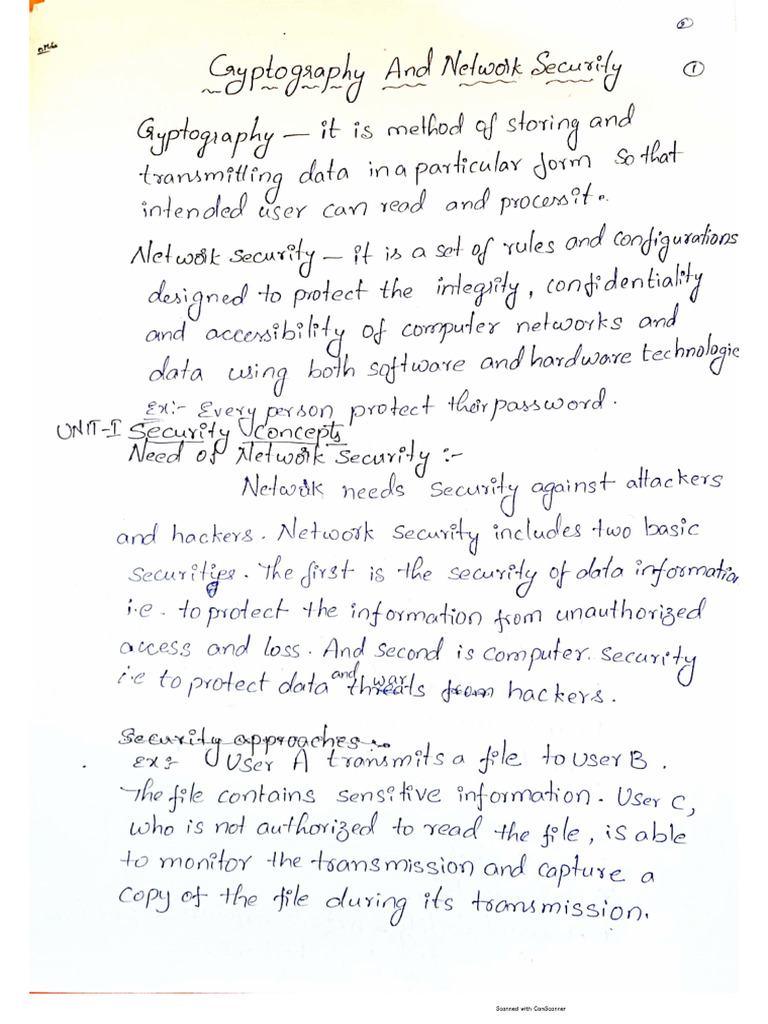 Cryptography And Network Security ①
Cryptography — it is method of storing and
transmitting data in a particular form so that
intended user can read and process it.
Network security — it is a set of rules and configurations
designed to protect the integrity, confidentiality
and accessibility of computer networks and
data using both software and hardware technologie
Ex:- Every person protect their password.
UNIT-I Security concepts
Need of Network security :-
Network needs security against attackers
and hackers. Network security includes two basic
securities. The first is the security of data informatio
i.e. to protect the information from unauthorized
access and loss. And second is computer security
i.e to protect data and threats from hackers.
Security approaches :-
Ex:- User A transmits a file to user B.
The file contains sensitive information. User C,
who is not authorized to read the file, is able
to monitor the transmission and capture a
copy of the file during its transmission.
Scanned with CamScanner